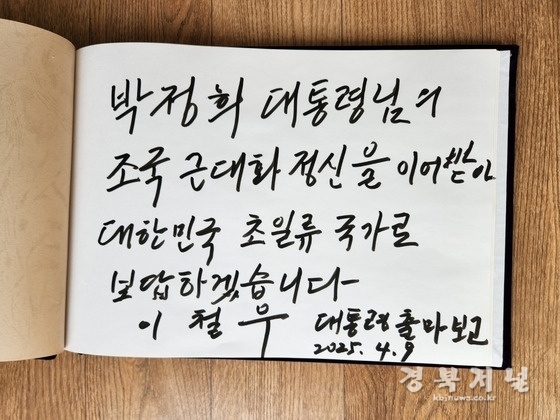 박정희 대통령님의
조국 근대화 정신을 이어받아
대한민국 초일류 국가로
보답하겠습니다
이 철 우 대통령 출마 보고
2025. 4. 9
경북저널
kbjnuws.co.kr